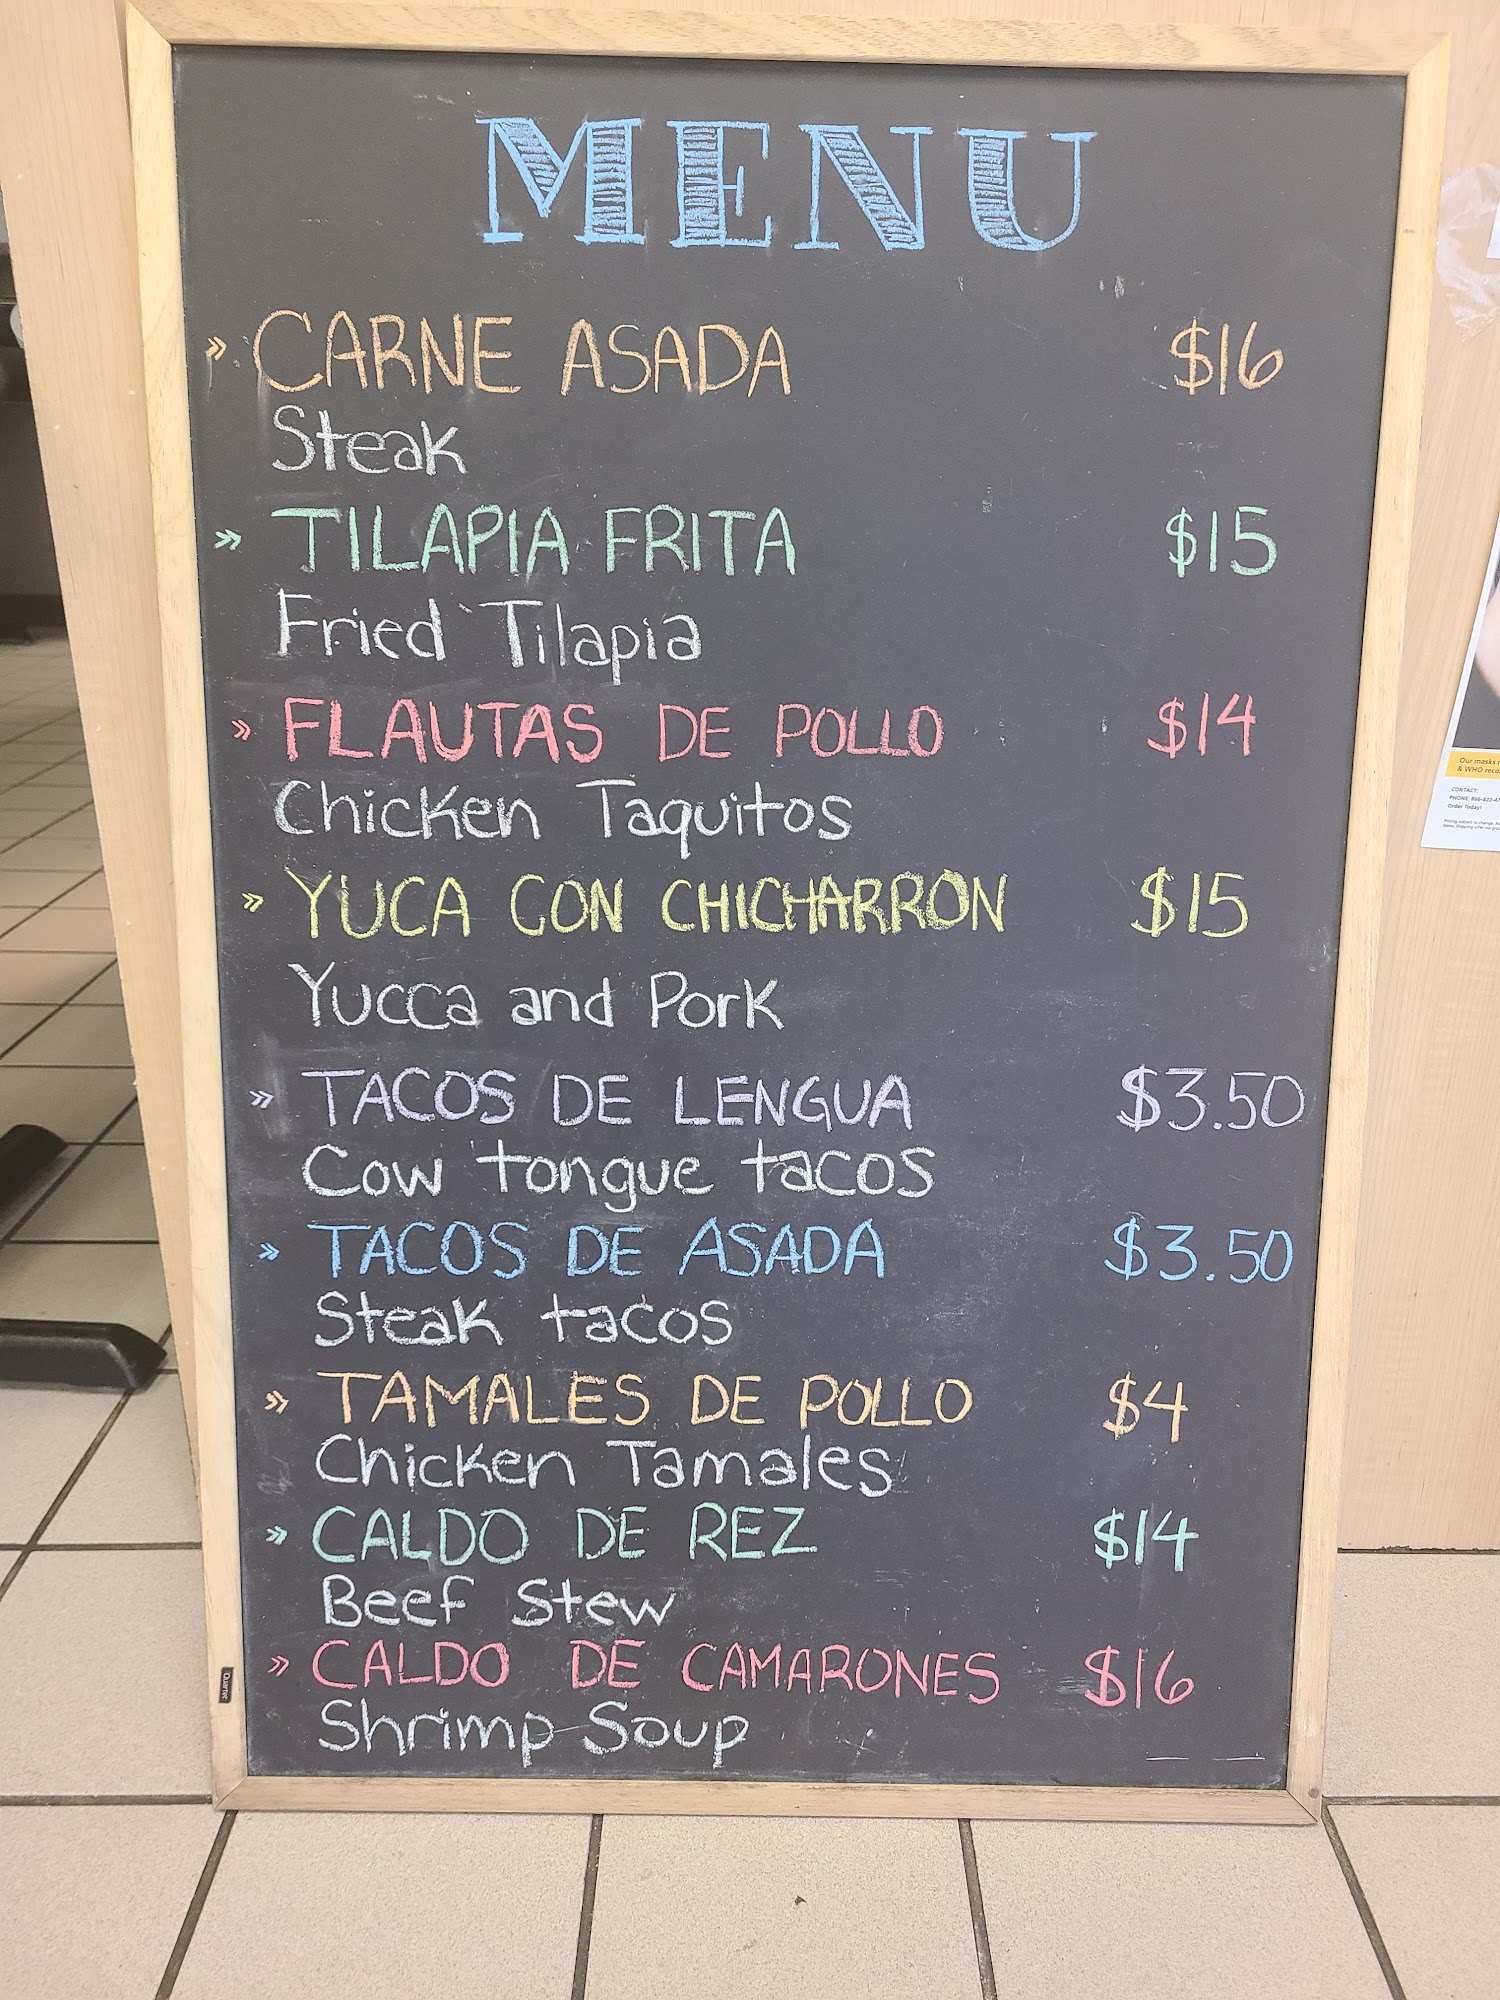 MENU
» CARNE ASADA $16
Steak
» TILAPIA FRITA $15
Fried Tilapia
» FLAUTAS DE POLLO $14
Chicken Taquitos
» YUCA CON CHICHARRON $15
Yucca and Pork
» TACOS DE LENGUA $3.50
Cow tongue tacos
» TACOS DE ASADA $3.50
Steak tacos
» TAMALES DE POLLO $4
Chicken Tamales
» CALDO DE REZ $14
Beef Stew
» CALDO DE CAMARONES $16
Shrimp Soup
Quartet
Our masks
& WHO
CONTACT:
PHONE: 866-822-
Order Today!